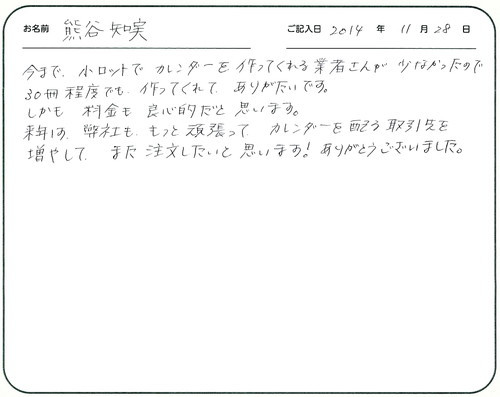 お名前 熊谷知実 ご記入日 2014 年 11 月 28 日
今まで、小ロットで カレンダーを 作ってくれる業者さんが 少なかったので
30冊程度でも、作ってくれて、ありがたいです。
しかも 料金も 良心的だと 思います。
来年は、弊社も、もっと 頑張って カレンダーを 配る 取引先を
増やして、また 注文したいと 思います! ありがとうございました。